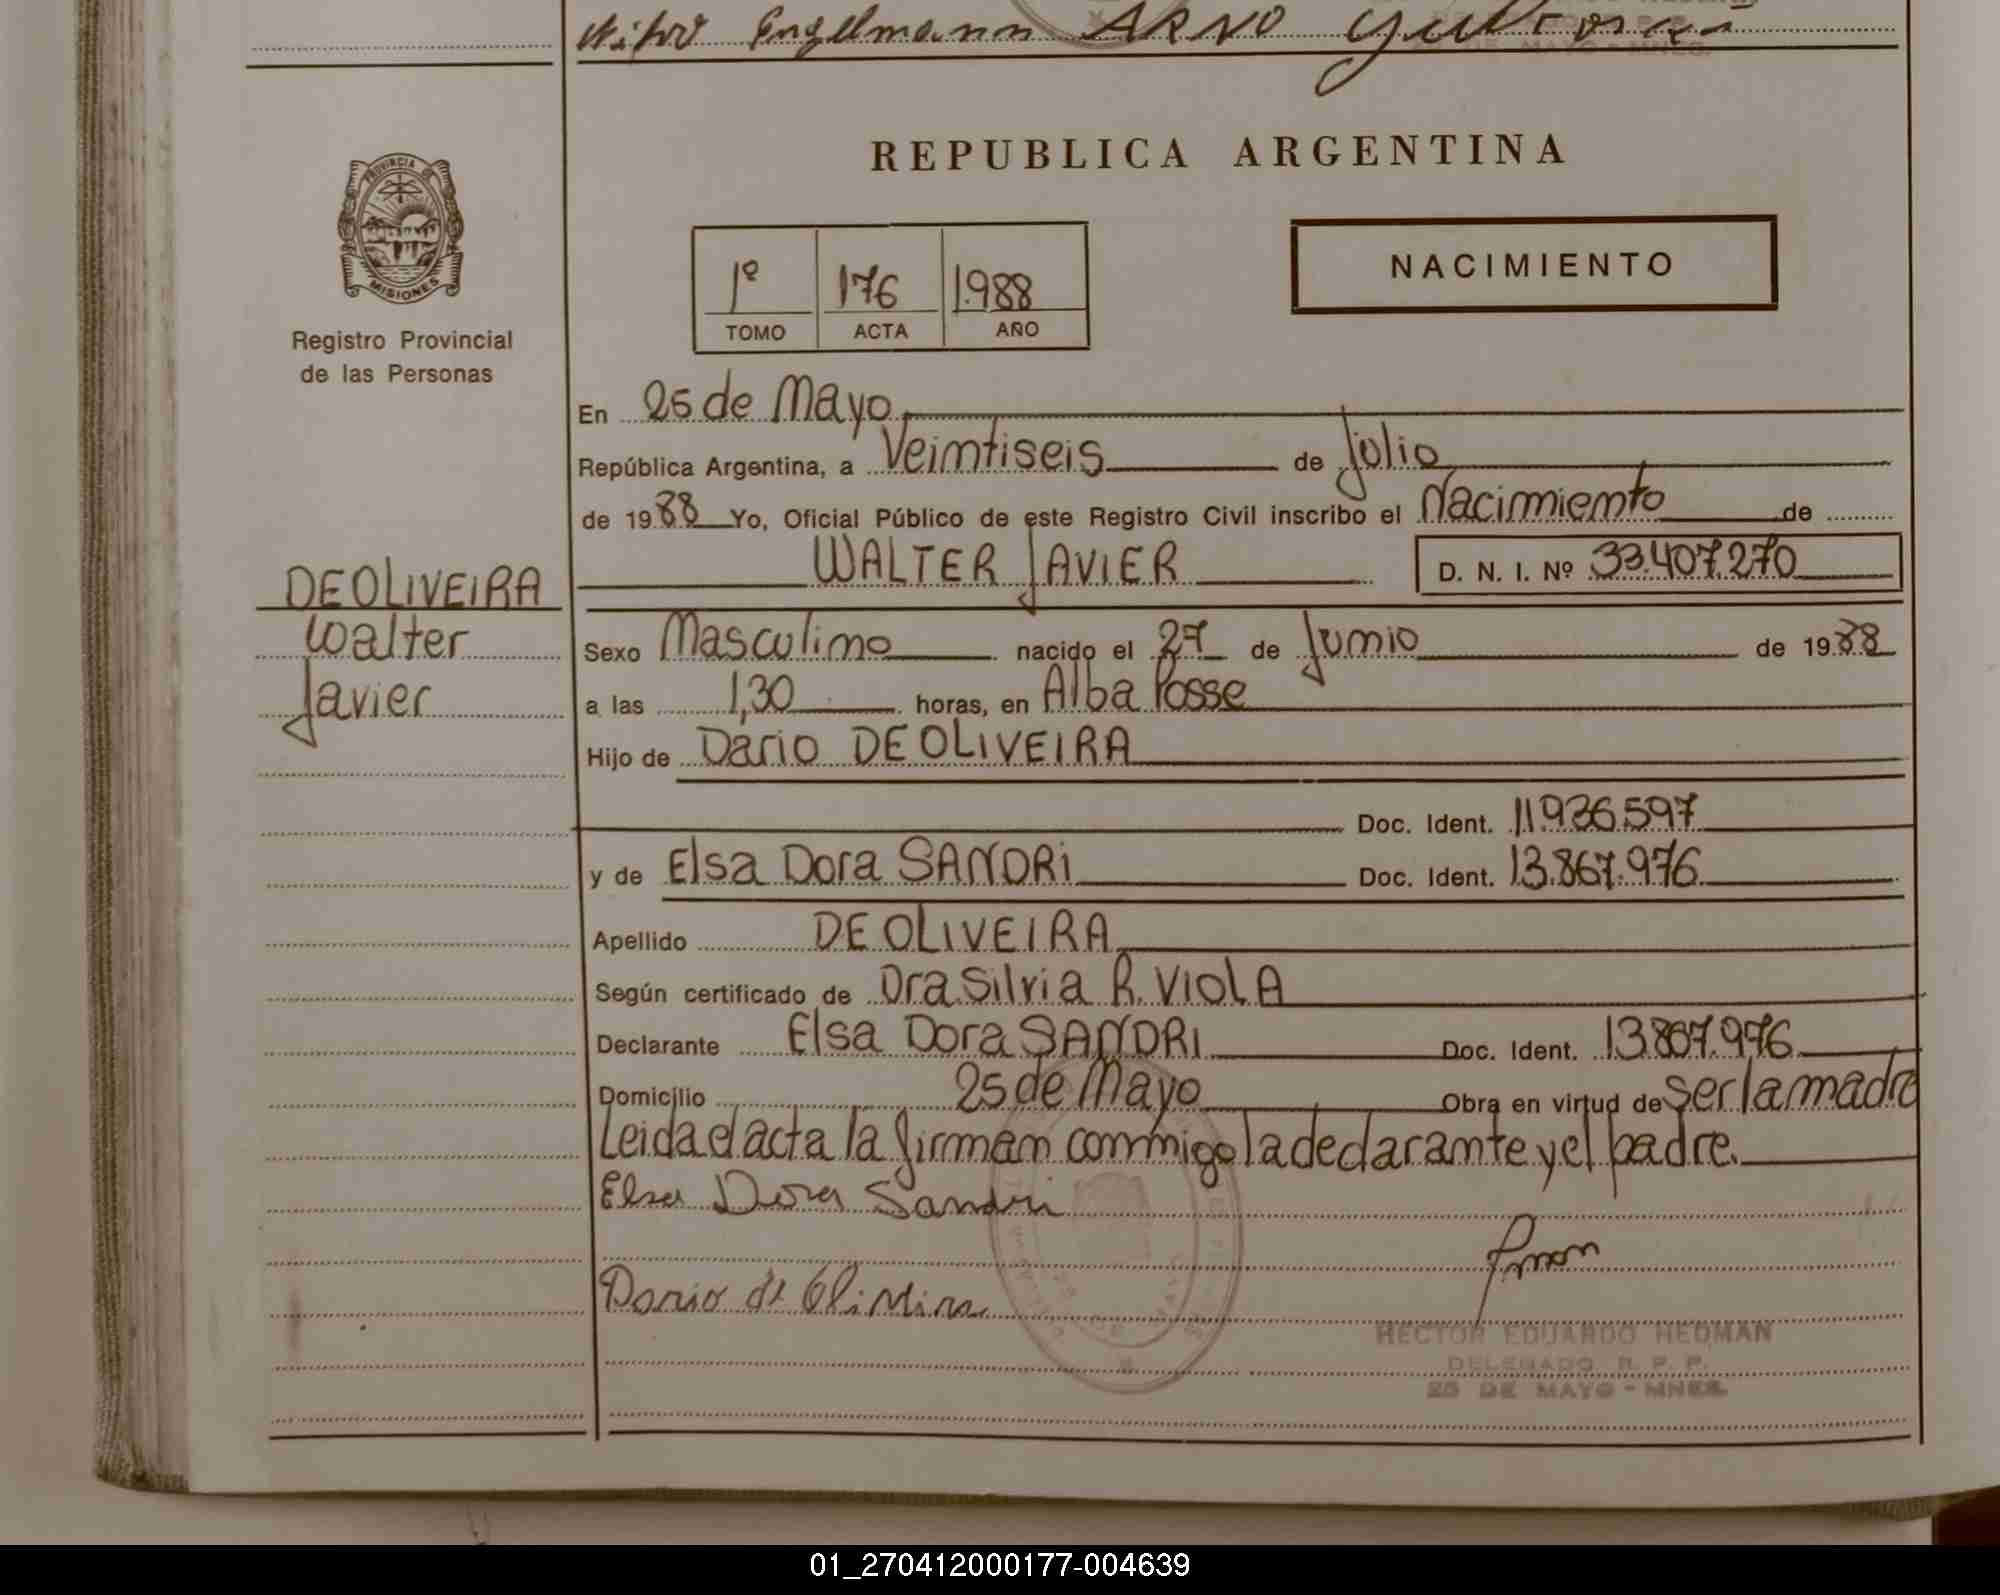 Engelmann ARNO
REPUBLICA ARGENTINA
PROVINCIA DE
MISIONES
1º 176 1.988
TOMO ACTA AÑO
NACIMIENTO
Registro Provincial
de las Personas
En 25 de Mayo
República Argentina, a Veintiseis de Julio
de 1988 Yo, Oficial Público de este Registro Civil inscribo el Nacimiento de
WALTER JAVIER D. N. I. Nº 33.407.270
DE OLIVEIRA
Walter
Javier
Sexo Masculino nacido el 27 de Junio de 1988
a las 1,30 horas, en Alba Posse
Hijo de Dario DE OLIVEIRA
Doc. Ident. 11.936.597
y de Elsa Dora SANDRI Doc. Ident. 13.867.976
Apellido DE OLIVEIRA
Según certificado de Dra Silvia R. VIOLA
Declarante Elsa Dora SANDRI Doc. Ident. 13.867.976
Domicilio 25 de Mayo Obra en virtud de ser la madre
Leida el acta la firman conmigo la declarante y el padre.
Elsa Dora Sandri
Dario de Oliveira
HECTOR EDUARDO HEDMAN
DELEGADO R. P. P.
25 DE MAYO - MNES.
01_270412000177-004639